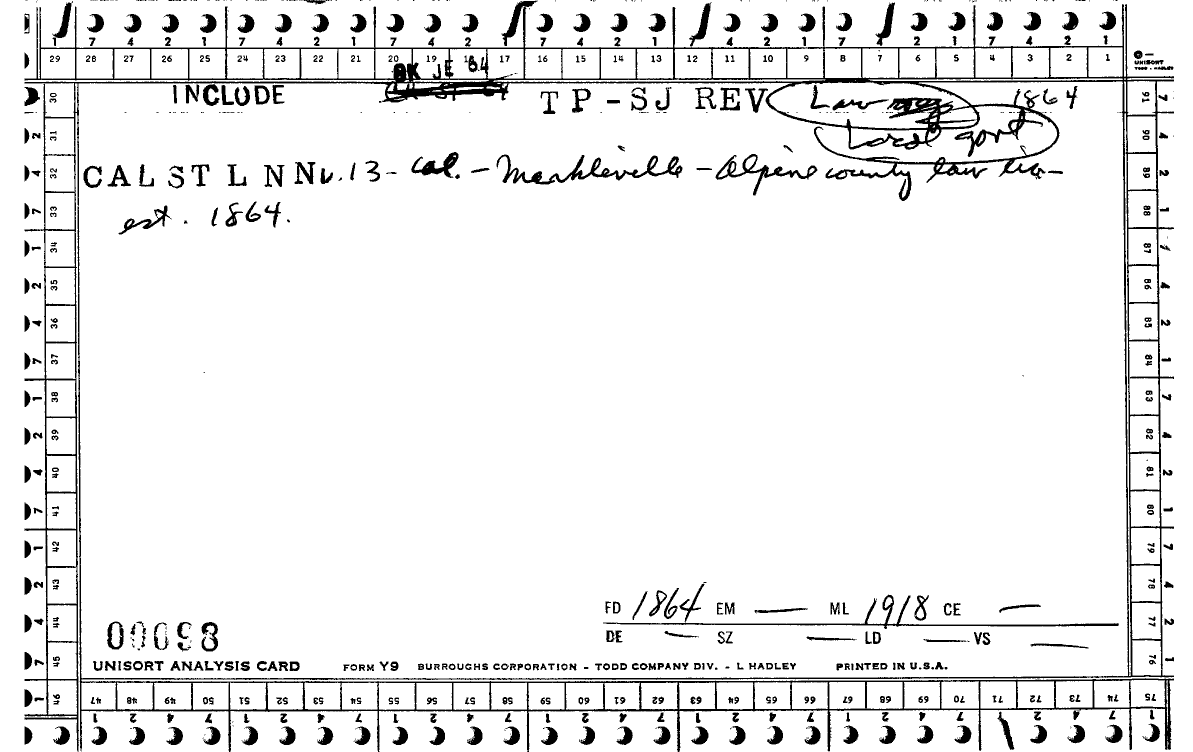 7 4 2 1 7 4 2 1 7 4 2 1 7 4 2 1 7 4 2 1 7 4 2 1 7 4 2 1
29 28 27 26 25 24 23 22 21 20 19 18 17 16 15 14 13 12 11 10 9 8 7 6 5 4 3 2 1
UNISORT
TODD - HADLEY
OK JE 64
INCLUDE TP-SJ REV Law 1864
Local govt
CAL ST L N Nv. 13 - Cal. - Markleville - Alpine county law lib-
est. 1864.
30 31 32 33 34 35 36 37 38 39 40 41 42 43 44 45 46
91 90 89 88 87 86 85 84 83 82 81 80 79 78 77 76 75
FD 1864 EM — ML 1918 CE —
DE — SZ — LD — VS —
00098
UNISORT ANALYSIS CARD FORM Y9 BURROUGHS CORPORATION - TODD COMPANY DIV. - L HADLEY PRINTED IN U.S.A.
47 48 49 50 51 52 53 54 55 56 57 58 59 60 61 62 63 64 65 66 67 68 69 70 71 72 73 74 75